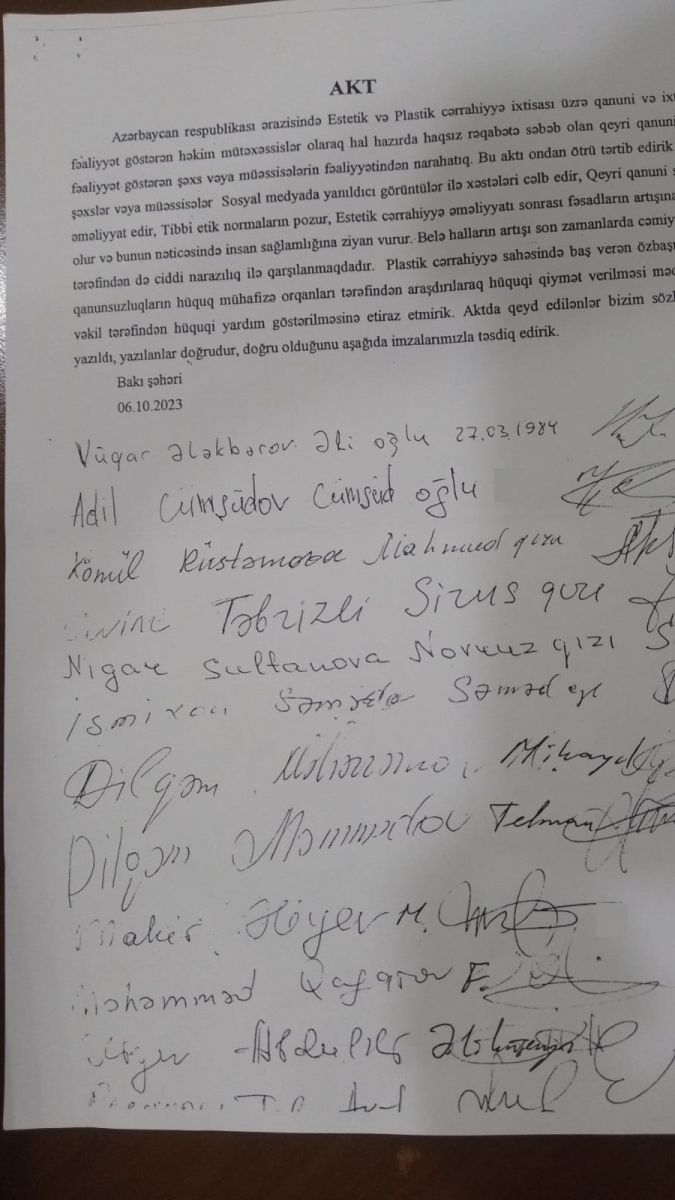 AKT
Azərbaycan respublikası ərazisində Estetik və Plastik cərrahiyyə ixtisası üzrə qanuni və
fəaliyyət göstərən həkim mütəxəssislər olaraq hal hazırda haqsız rəqabətə səbəb olan qeyri qanuni
fəaliyyət göstərən şəxs vəya müəssisələrin fəaliyyətindən narahatıq. Bu aktı ondan ötrü tərtib edirik
şəxslər vəya müəssisələr Sosyal medyada yanıldıcı görüntülər ilə xəstələri cəlb edir, Qeyri qanuni
əməliyyat edir, Tibbi etik normaların pozur, Estetik cərrahiyyə əməliyyatı sonrası fəsadların artışına
olur və bunun nəticəsində insan sağlamlığına ziyan vurur. Belə halların artışı son zamanlarda
tərəfindən də ciddi narazılıq ilə qarşılanmaqdadır. Plastik cərrahiyyə sahəsində baş verən
qanunsuzluqların hüquq mühafizə orqanları tərəfindən araşdırılaraq hüquqi qiymət verilməsi
vəkil tərəfindən hüquqi yardım göstərilməsinə etiraz etmirik. Aktda qeyd edilənlər bizim
yazıldı, yazılanlar doğrudur, doğru olduğunu aşağıda imzalarımızla təsdiq edirik.
Bakı şəhəri
06.10.2023
Vüqar Ələkbərov Əli oğlu 27.03.1984
Adil Cümşüdov Cümşüd oğlu
Könül Rüstəmova Mahmud qızı
Təbrizli Sirus qızı
Nigar Sultanova Novruz qızı
Səməd
Dilqəm
Dilqəm Məmmədov Telman
Mahir Əliyev M.
Məhəmməd Qafarov F.